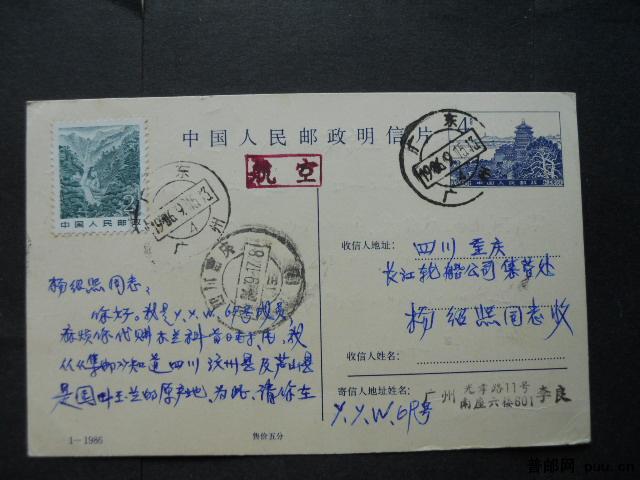 中国人民邮政明信片
4分
中国人民邮政
中国人民邮政
航空
广东
1986.9.15.13
广州
广东
1986.9.15.13
广州
四川
收信人地址：
四川 重庆
长江轮船公司集管处
杨绍熙同志收
收信人姓名：
寄信人地址姓名：
广州 光孝路11号
南座六楼601 李良
Y.Y.W. 69号
杨绍熙同志：
你好。我是Y.Y.W. 69号成员，
麻烦你代购木兰科首日封用，我
从《集邮》知道四川汶川县及芦山县
是圆叶玉兰的原产地，为此，请你在
1-1986
售价五分
普邮网 puu.cn